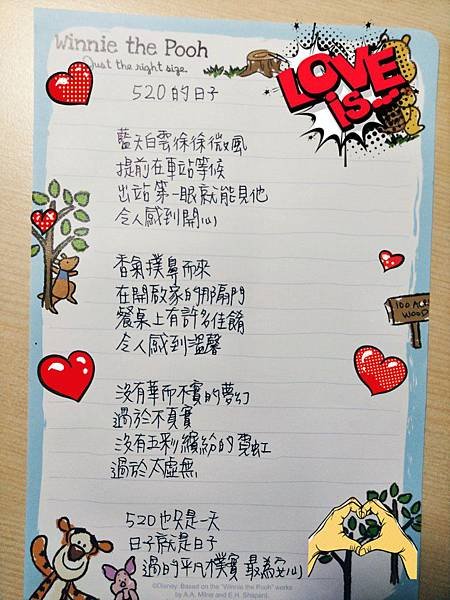 Winnie the Pooh
Just the right size
LOVE
IS...
520的日子
藍天白雲徐徐微風
提前在車站等候
出站第一眼就能見他
令人感到開心
香氣撲鼻而來
在開啟家的那扇門
餐桌上有許多佳餚
令人感到溫馨
100 ACRE
WOOD
沒有華而不實的夢幻
過於不真實
沒有五彩繽紛的霓虹
過於太虛無
520也只是一天
日子就是日子
過的平凡樸實 最為安心
©Disney. Based on the "Winnie the Pooh" works
by A.A. Milne and E.H. Shepard.